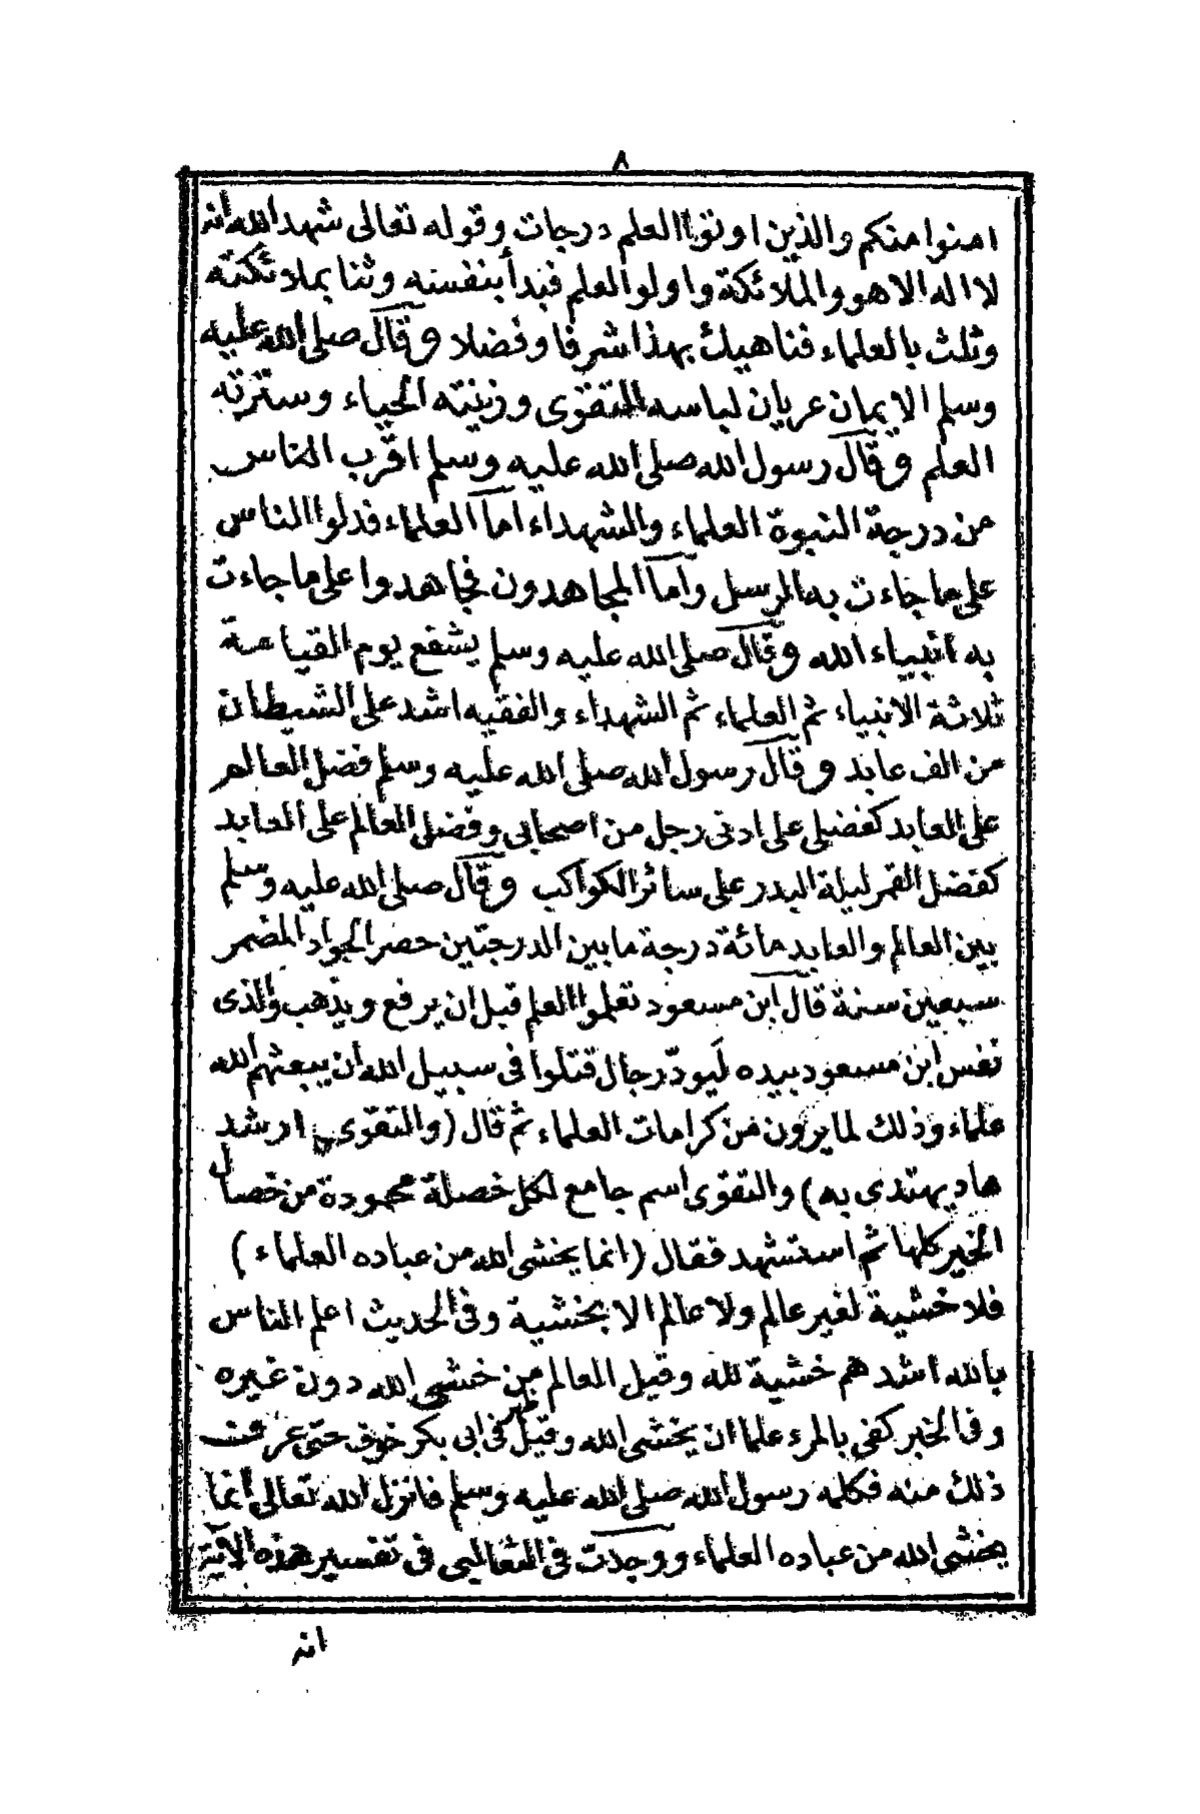 ٨
امنوا منكم والذين اوتوا العلم درجات وقوله تعالى شهد الله انه
لا اله الا هو والملائكة واولوا العلم فبدأ بنفسه وثنا بملائكته
وثلث بالعلماء فناهيك بهذا شرفا وفضلا وقال صلى الله عليه
وسلم الايمان عريان لباسه التقوى وزينته الحياء وسترته
العلم وقال رسول الله صلى الله عليه وسلم اقرب الناس
من درجة النبوة العلماء والشهداء اما العلماء فدلوا الناس
على ما جاءت به الرسل واما المجاهدون فجاهدوا على ما جاءت
به انبياء الله وقال صلى الله عليه وسلم يشفع يوم القيامة
ثلاثة الانبياء ثم العلماء ثم الشهداء والفقيه اشد على الشيطان
من الف عابد وقال رسول الله صلى الله عليه وسلم فضل العالم
على العابد كفضلى على ادنى رجل من اصحابى وفضل العالم على العابد
كفضل القمر ليلة البدر على سائر الكواكب وقال صلى الله عليه وسلم
بين العالم والعابد مائة درجة ما بين الدرجتين حضر الجواد المضمر
سبعين سنة قال ابن مسعود تعلموا العلم قبل ان يرفع ويذهب والذى
نفس ابن مسعود بيده ليودّ رجال قتلوا فى سبيل الله ان يبعثهم الله
علماء وذلك لما يرون من كرامات العلماء ثم قال (والتقوى ارشد
هاد يهتدى به) والتقوى اسم جامع لكل خصلة محمودة من خصال
الخير كلها ثم استشهد فقال (انما يخشى الله من عباده العلماء)
فلا خشية لغير عالم ولا عالم الا بخشية وفى الحديث اعلم الناس
بالله اشدهم خشية لله وقيل العالم من خشى الله دون غيره
وفى الخبر كفى بالمرء علما ان يخشى الله وقيل ظهر فى ابى بكر خوف حتى عرفت
ذلك منه فكلمه رسول الله صلى الله عليه وسلم فانزل الله تعالى انما
يخشى الله من عباده العلماء ووجدت فى الثعالبى فى تفسير هذه الآية
انه